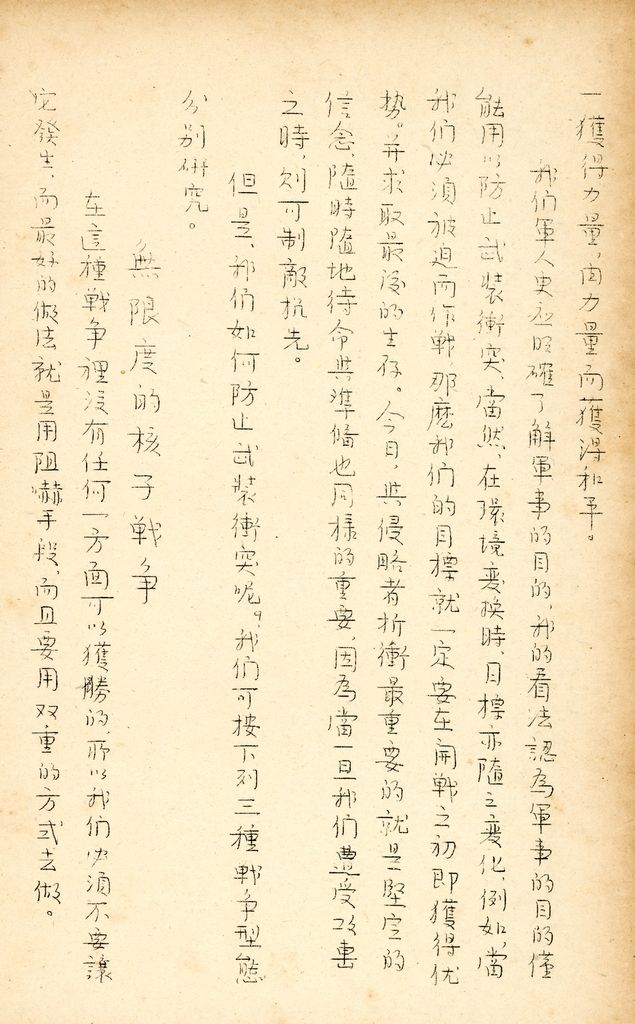 一獲得力量，由力量而獲得和平。
我們軍人更应明確了解軍事的目的，我的看法認為軍事的目的僅
能用以防止武裝衝突，當然，在環境变换時，目標亦隨之变化，例如，當
我們必須被迫而作戰那麽我們的目標就一定要在開戰之初即獲得优
势。并求取最後的生存。今日，與侵略者折衝最重要的就是堅定的
信念，隨時隨地待命與準備也同樣的重要，因為當一旦我們遭受攻击
之時，则可制敵机先。
但是，我們如何防止武裝衝突呢？我們可按下列三種戰争型態
分别研究。
無限度的核子戰争
在這種戰争裡没有任何一方面可以獲勝的，所以我們必須不要讓
它發生，而最好的做法就是用阻嚇手段，而且要用双重的方式去做。